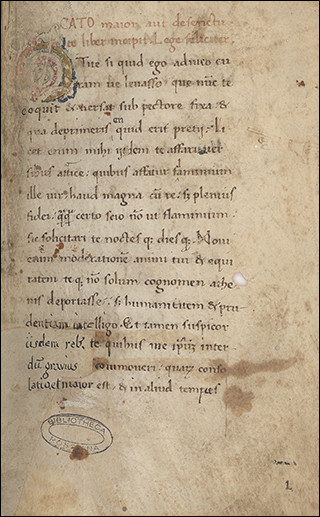 CATO maior aut de senectu
te liber incipit. Lege feliciter.
O Tite si quid ego adiuto cu
ram ue leuasso que nunc te
coquit & uersat sub pectore fixa &
qua deprimeris en quid erit pretii. Li
cet enim mihi iisdem te affari uer
sibus attice: quibus affatur flamminum
ille uir haud magna cu re: sz plenus
fidei. qqz certo scio no ut flamminum.
Sic solicitari te noctes qz diesqz. Noui
enim moderatione animi tui & equi
tatem teqz no solum cognomen athe
nis deportasse. sz humanitatem & pru
dentiam intelligo. Et tamen suspicor
iisdem reb. te quibus me ipsum inter
du grauius commoueri. quarz conso
latio et maior est. & in aliud tempus
BIBLIOTHECA
1